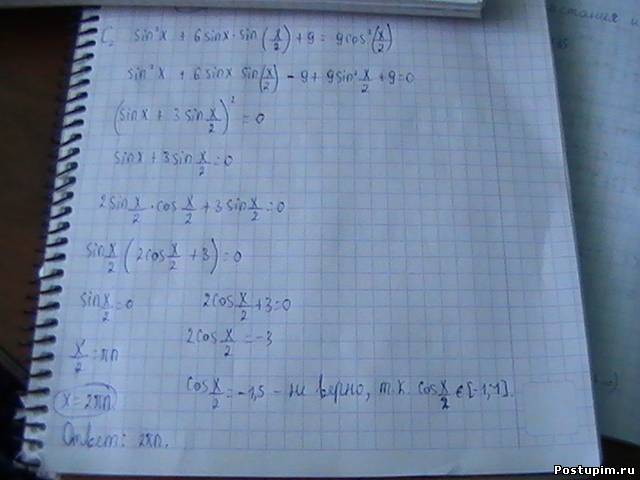 C₂ sin²x + 6 sinx · sin(x/2) + 9 = 9cos²(x/2)
sin²x + 6 sinx sin(x/2) - 9 + 9 sin² x/2 + 9 = 0
(sinx + 3 sin x/2)² = 0
sinx + 3 sin x/2 = 0
2 sin x/2 · cos x/2 + 3 sin x/2 = 0
sin x/2 (2cos x/2 + 3) = 0
sin x/2 = 0 2cos x/2 + 3 = 0
x/2 = πn 2cos x/2 = -3
x = 2πn cos x/2 = -1,5 - не верно, т.к. cos x/2 ∈ [-1;1].
Ответ: 2πn.
Postupim.ru